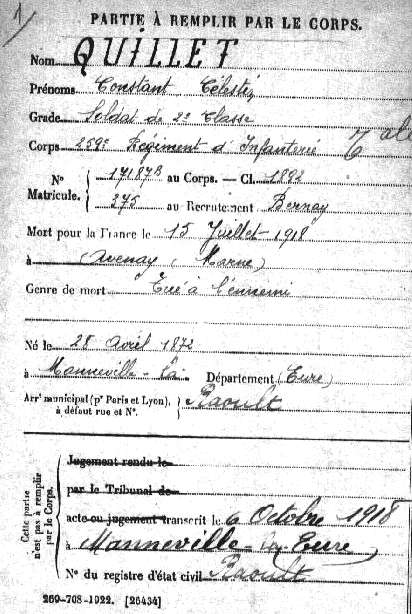 1/
PARTIE À REMPLIR PAR LE CORPS.
Nom QUILLET
Prénoms Constant Célestin
Grade Soldat de 2e Classe
Corps 259e Régiment d'Infanterie
N° Matricule. { 17187B au Corps. — Cl. 1892
275 au Recrutement Bernay
Mort pour la France le 15 Juillet 1918
à Avenay (Marne)
Genre de mort Tué à l'ennemi
Né le 28 Avril 1872
à Manneville-la- Département (Eure)
Arrt municipal (pr Paris et Lyon), à défaut rue et N°. } Raoult
Cette partie n'est pas à remplir par le Corps.
Jugement rendu le
par le Tribunal de
acte ou jugement transcrit le 6 Octobre 1918
à Manneville- Eure
N° du registre d'état civil Raoult
259-708-1922. [26434]